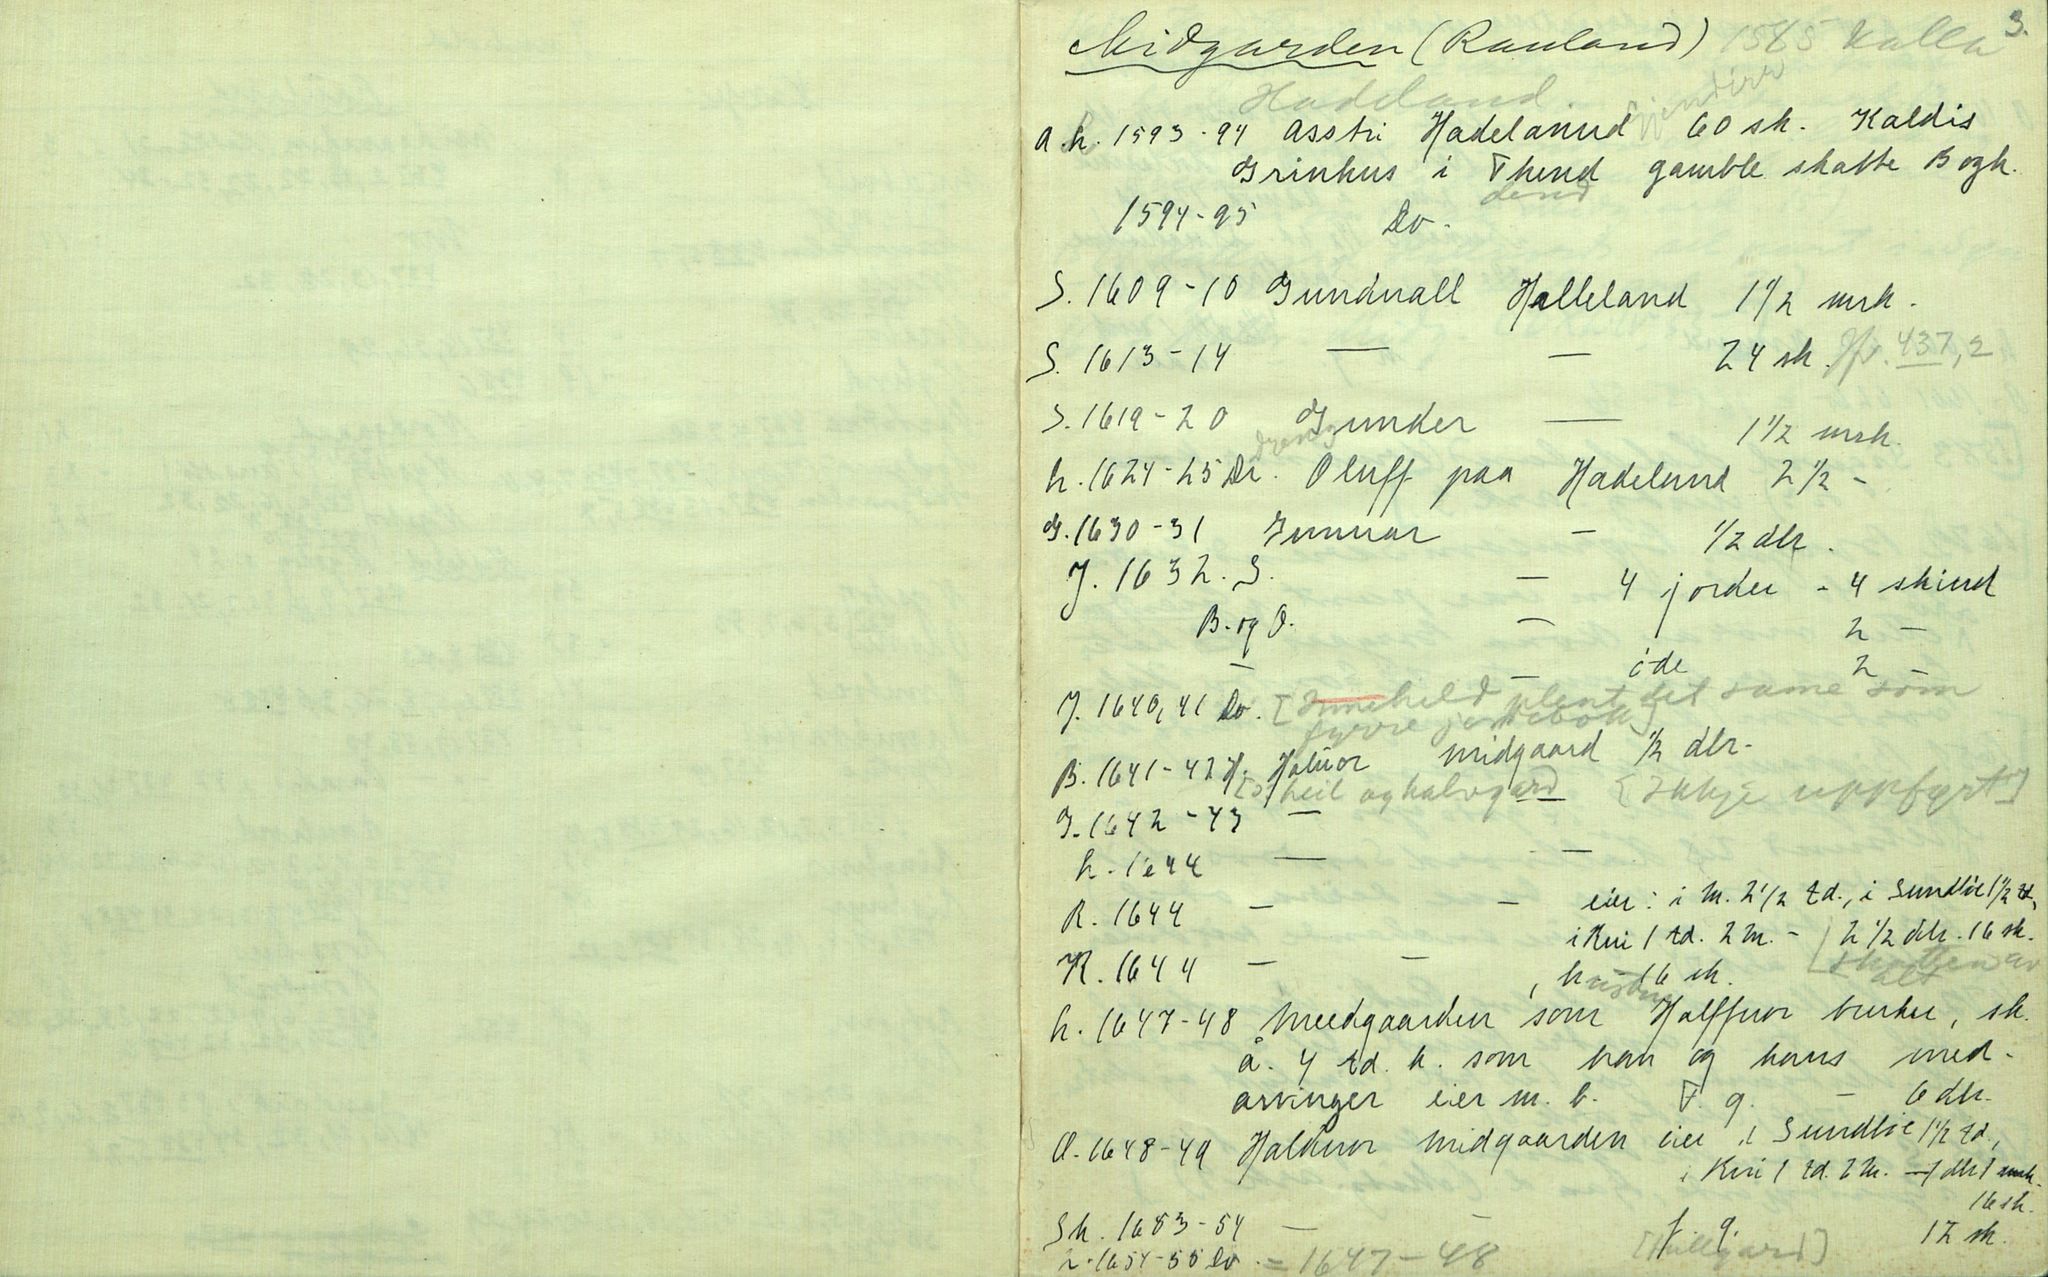 3.
Midgarden (Rauland) 1585 kalla
Hadeland.
a.h. 1593-94 Asstri Hadelannd tjendire 60 sk. Kaldis
Grinhus i Thend gamble skatte Bogh.
dend
1594-95 Do.
S. 1609-10 Gundnall Halleland 1 1/2 mrk.
S. 1613-14 — — 24 sk. Jfr. 437,2
S. 1619-20 Gunder — 1 1/2 mrk.
dreng
h. 1624-25 Dr. Oluff paa Hadeland 2 1/2 -
G. 1630-31 Gunnar — 1/2 dlr.
J. 1632. S. — 4 jorder - 4 skind
B. og O. — 2 —
— — öde 2 —
J. 1640, 41 Do. [Inneheld plent det same som
fyrre jordebok]
B. 1641-42 H. Haluor midgaard 1/2 dlr.
heil og halvgard [Ikkje uppfyrt]
G. 1642-43 —
h. 1644 — —
R. 1644 — — eier: i M. 2 1/2 td., i Sundlie 1 1/2 td,
i Kvi 1 td. 2 M. - 2 1/2 dlr. 16 sk.
[skatten av
alt
K. 1644 — — , h 16 sk.
h. 1647-48 Meedgaarden som Halffuor bruker, sk.
å. 4 td. h. som han og hans med-
arvinger eier m. b. F. g. — 6 dlr.
O. 1648-49 Haluuor Midgaarden eier i Sundlie 1 1/2 td.,
i Kvi 1 td. 2 M. — 1 dlr 1 mrk.
16 sk.
Sk. 1653-54 — — f. g. 12 sk.
h. 1654-55 Do. = 1647-48 [Fullgard]